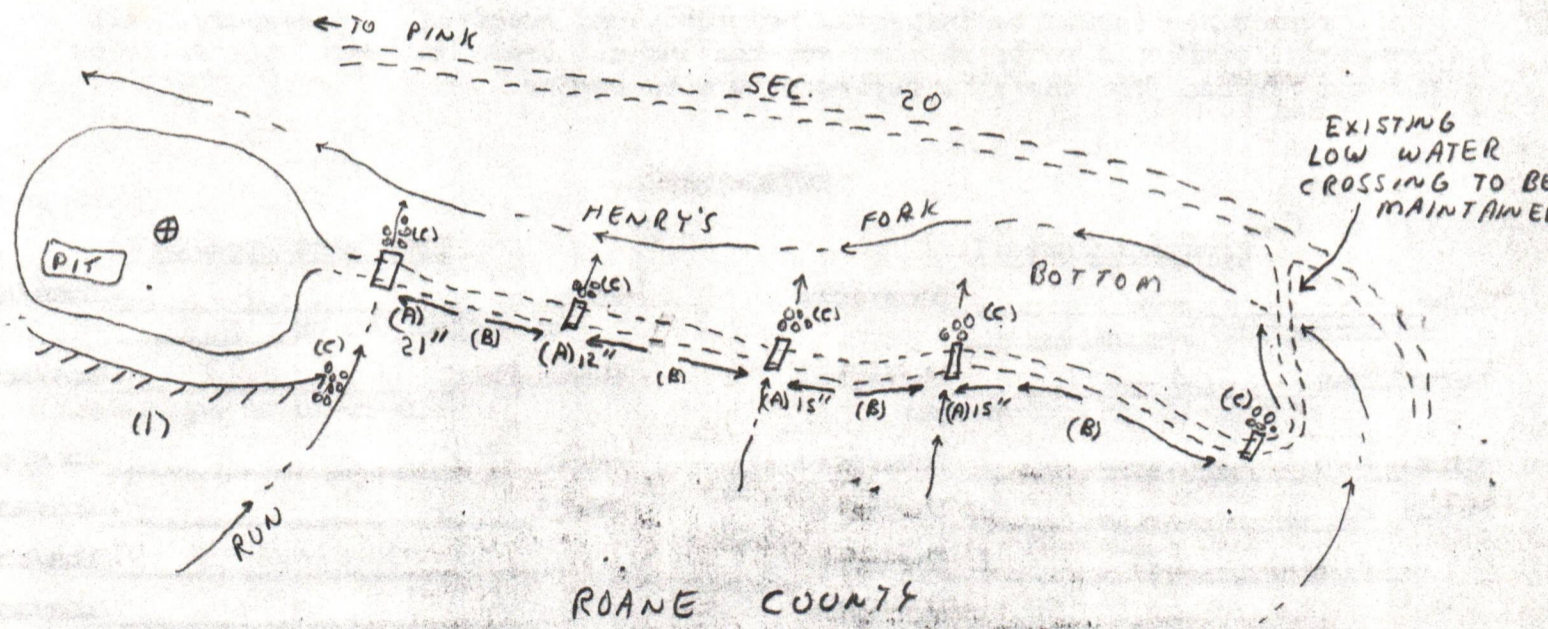 ← TO PINK
SEC. 20
EXISTING
LOW WATER
CROSSING TO BE
MAINTAINED
HENRY'S FORK
BOTTOM
PIT
(C)
(C)
(C)
(C)
(A)
21"
(B)
(A) 12"
(B)
(A) 15"
(B)
(A) 15"
(B)
(C)
(C)
(1)
RUN
ROANE COUNTY